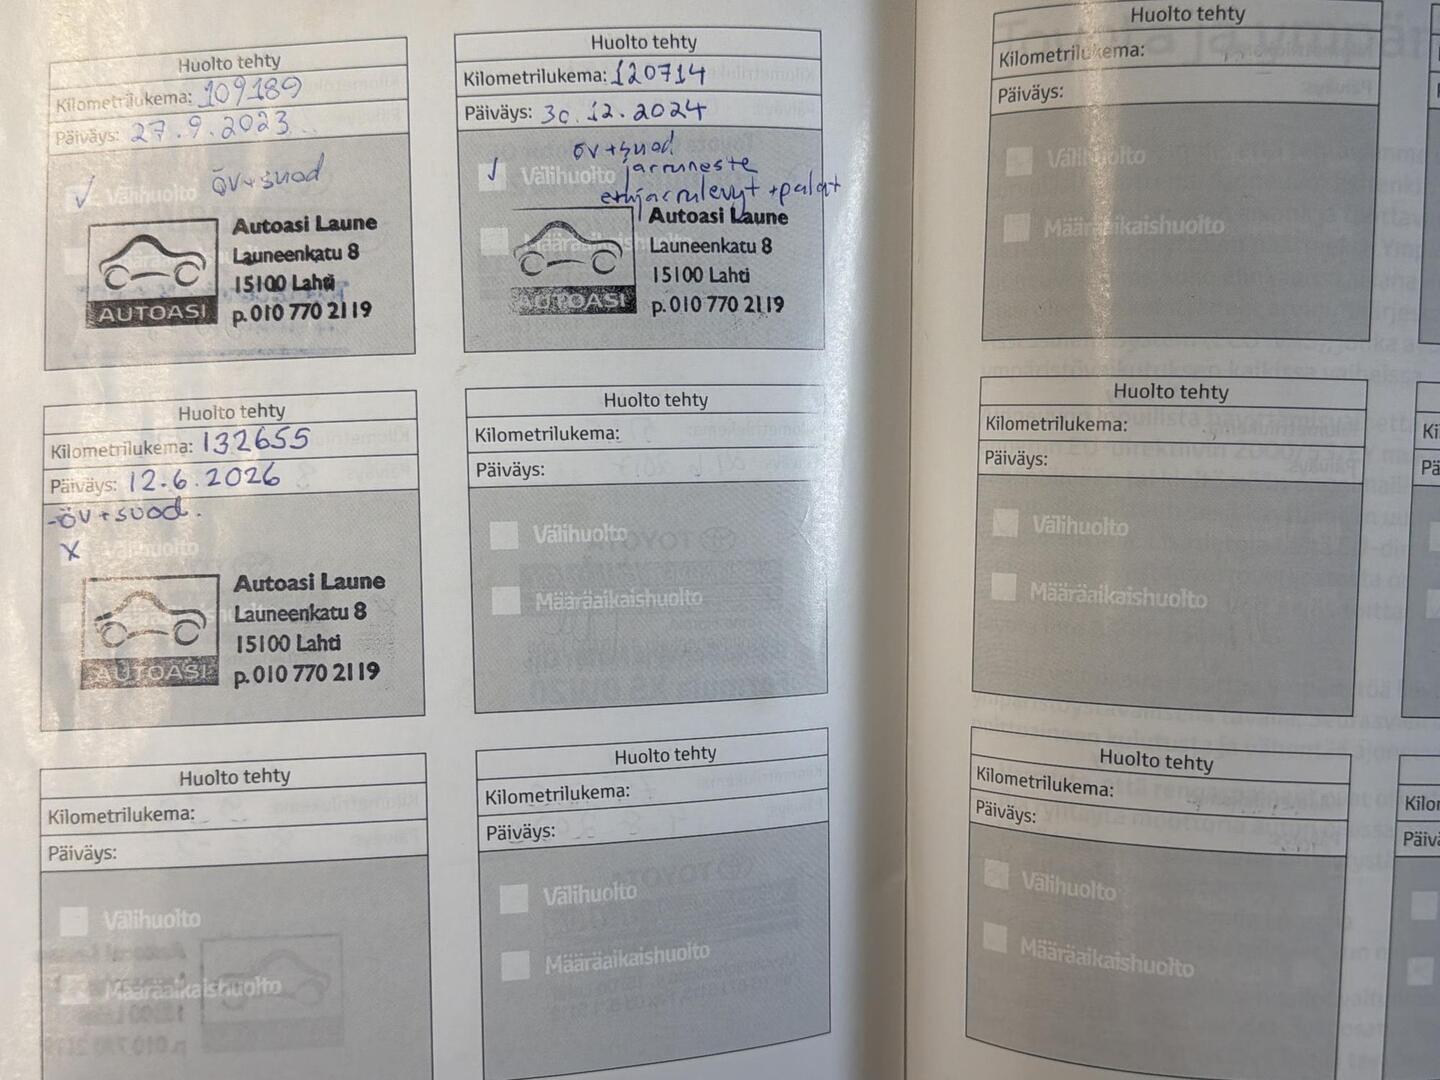 Huolto tehty
Kilometrilukema: 109189
Päiväys: 27.9.2023
✓ Välihuolto öv+suod
Autoasi Laune
Launeenkatu 8
15100 Lahti
p. 010 770 2119
AUTOASI
Huolto tehty
Kilometrilukema: 120714
Päiväys: 30.12.2024
öv+suod
✓ Välihuolto jarruneste
etujarrulevyt +palat
Määräaikaishuolto
Autoasi Laune
Launeenkatu 8
15100 Lahti
p. 010 770 2119
AUTOASI
Huolto tehty
Kilometrilukema:
Päiväys:
Välihuolto
Määräaikaishuolto
Huolto tehty
Kilometrilukema: 132655
Päiväys: 12.6.2026
-öv+suod.
x Välihuolto
Autoasi Laune
Launeenkatu 8
15100 Lahti
p. 010 770 2119
AUTOASI
Huolto tehty
Kilometrilukema:
Päiväys:
Välihuolto
Määräaikaishuolto
Huolto tehty
Kilometrilukema:
Päiväys:
Välihuolto
Määräaikaishuolto
Huolto tehty
Kilometrilukema:
Päiväys:
Välihuolto
Määräaikaishuolto
Huolto tehty
Kilometrilukema:
Päiväys:
Välihuolto
Määräaikaishuolto
Huolto tehty
Kilometrilukema:
Päiväys:
Välihuolto
Määräaikaishuolto